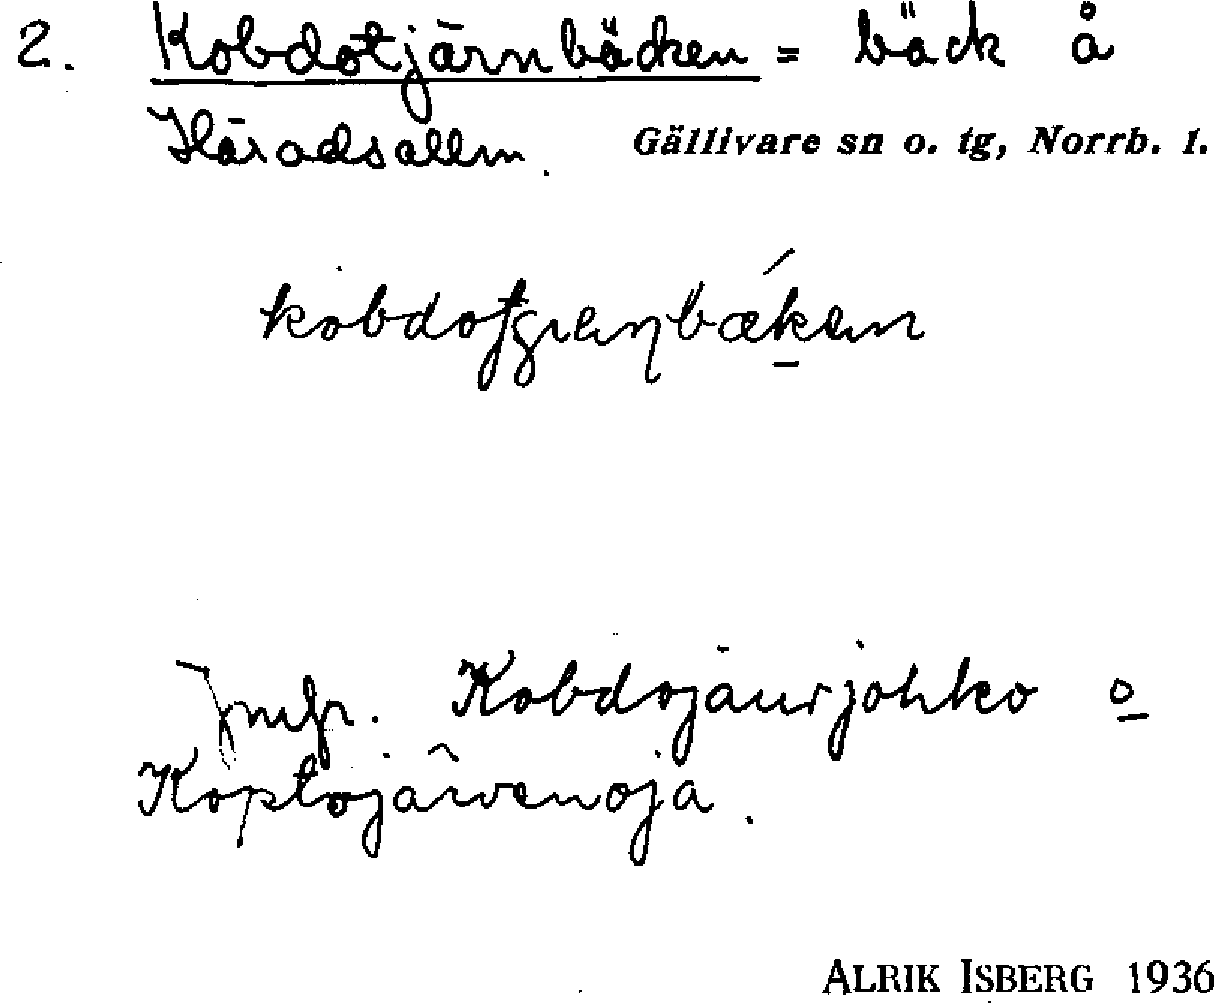 2. Kobdotjärnbäcken = bäck å
Häradsallm. Gällivare sn o. tg, Norrb. l.
Jmfr. Kobdojaurjohko o
Koptojärvenoja.
ALRIK ISBERG 1936